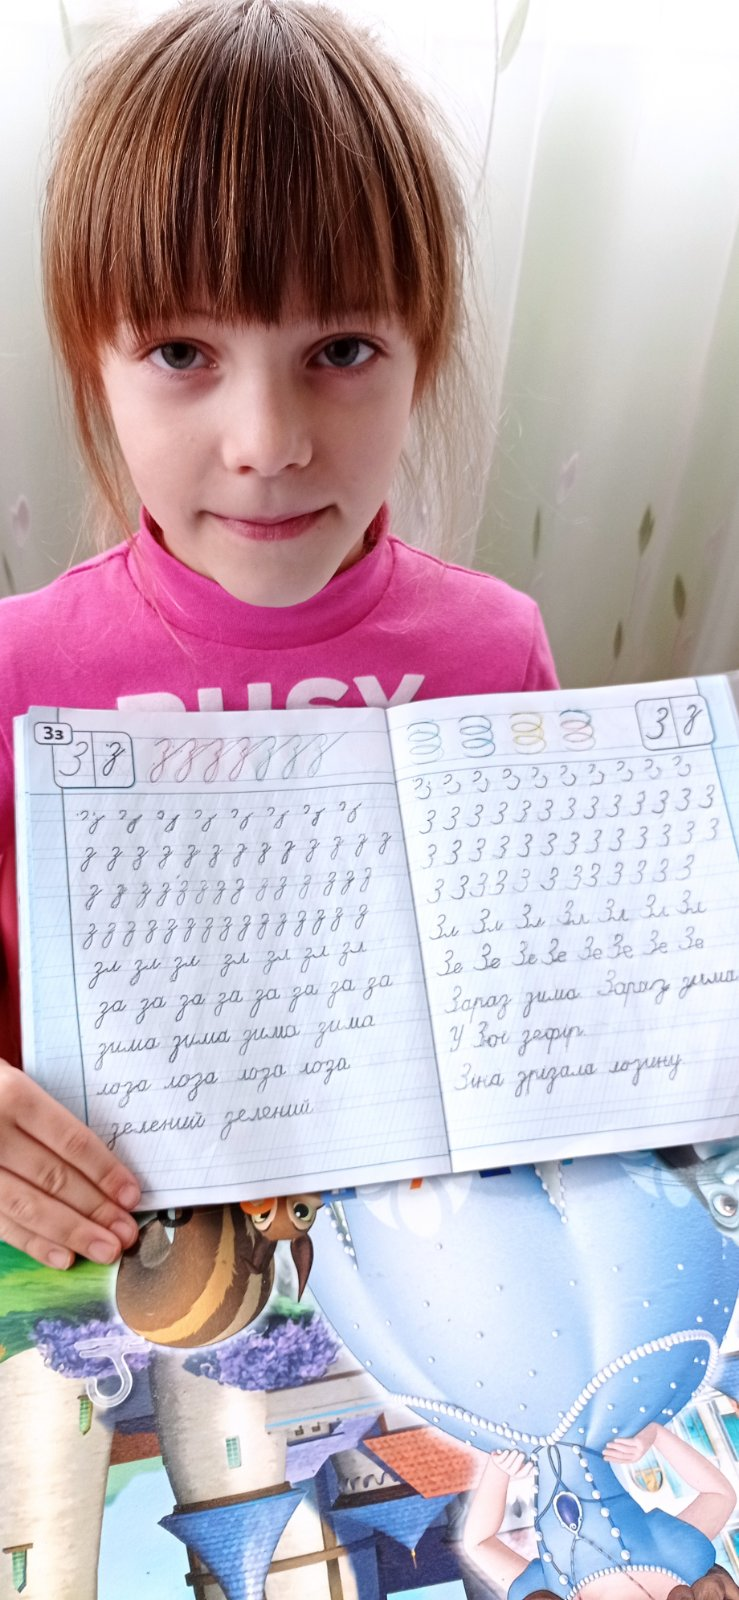 BUSY
Зз
З з
з з з з з з з з
з з з з з з з з
з з з з з з з з з з з з з
з з з з з з з з з з з з
з з з з з з з з з з з з з з з
зл зл зл зл зл зл зл
за за за за за за за за
зима зима зима зима
лоза лоза лоза лоза
зелений зелений
З з
З З З З З З З З З З
З З З З З З З З З З З З З
З З З З З З З З З З З З З
З З З З З З З З З З З З
Зл Зл Зл Зл Зл Зл Зл
Зе Зе Зе Зе Зе Зе Зе Зе
Зараз зима. Зараз зима
У Зої зефір.
Зіна зрізала лозину